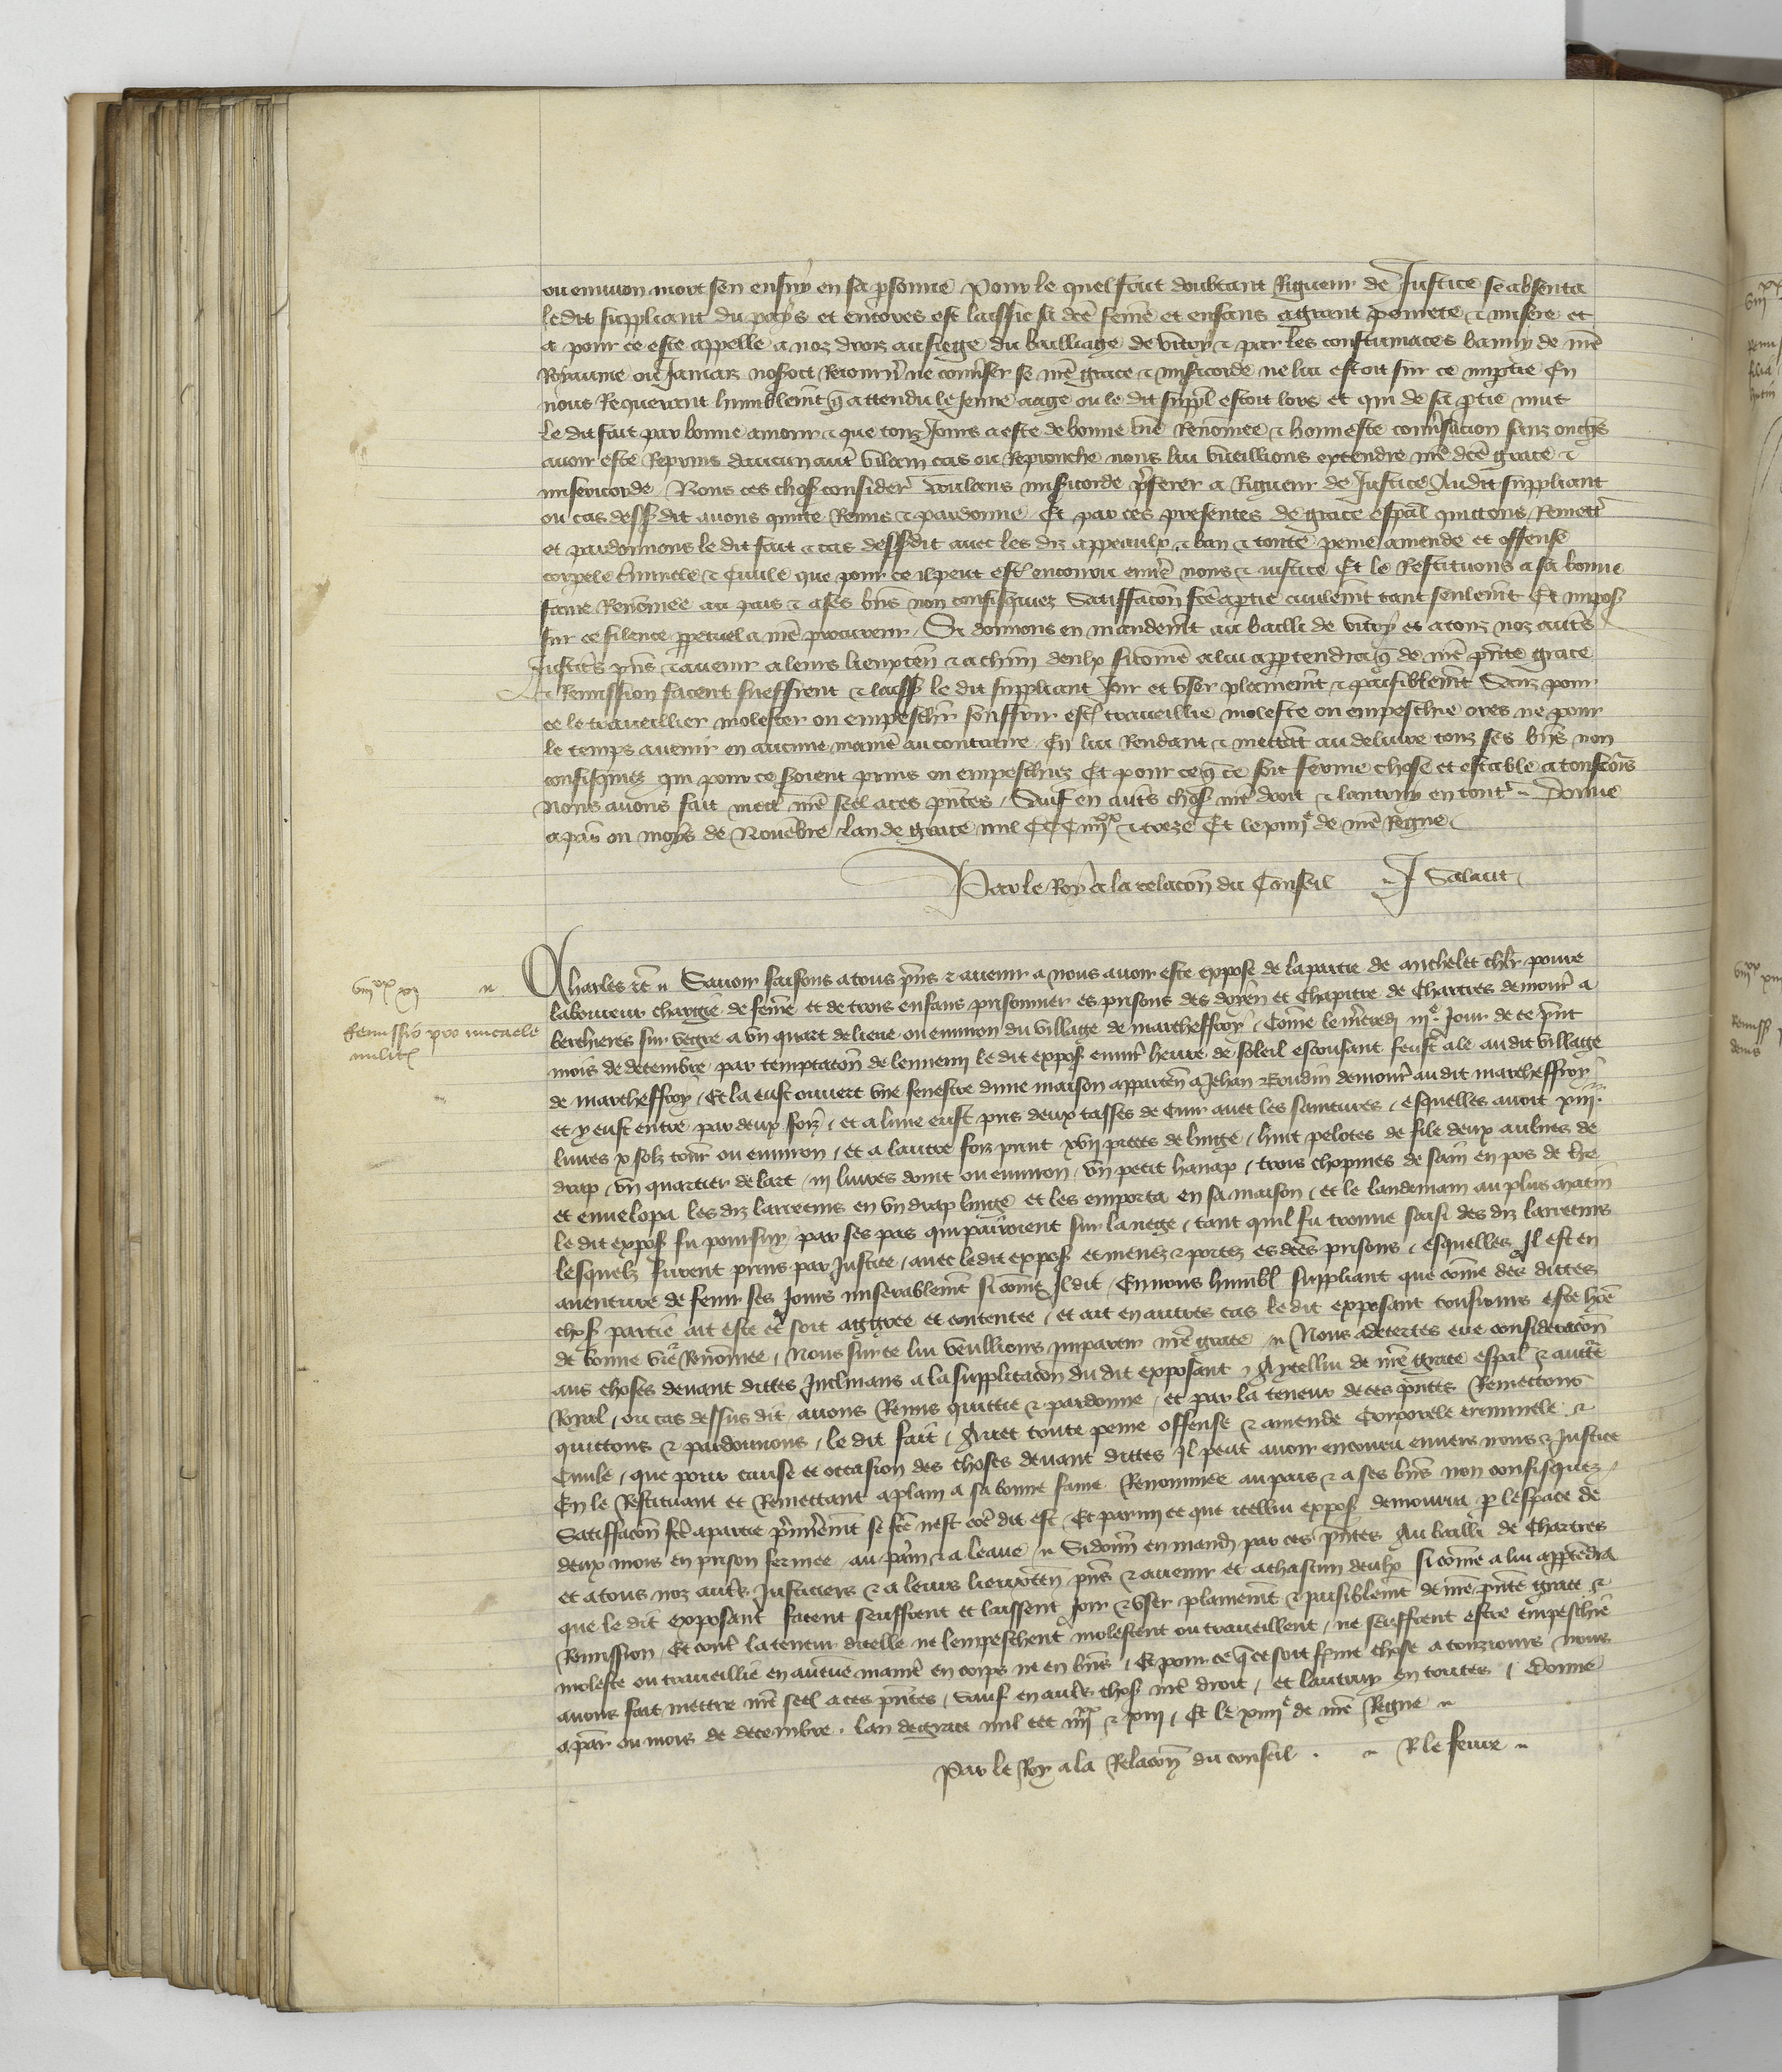 ou environ mort sen ensuy en sa psonne Pour le quel fait doubtant Rigueur de Justice se absenta
ledit suppliant du pays et encores est laissie sa dce feme et enfans a grant povrete & misere et
a pour ce este appelle a noz droiz au siege du bailliage de vitry & par les contumaces banny de nre
Royaume ou Jamaiz noseroit Retourn ne conuser se nre grace & misicorde ne lui estoit sur ce impartie En
nous Requerant humblemt q attendu le jeune aage ou le dit suppl estoit lors et qui de sa ptie mut
le dit fait par bonne amour & que touz Jours a este de bonne vie Renomee & honneste conusacion sanz onqs
avoir este Reprins daucun aut vilain cas ou Reprouche nous lui vueillions extendre nre dce grace &
misericorde Nous ces chos consider voulans misicorde pferer a Rigueur de Justice Audit suppliant
ou cas dessusdit avons quitte Remis & pardonne Et par ces presentes de grace espal quittons Remett
et pardonnons le dit fait & cas dessusdit avec les diz appeaulx & ban & toute peine amende et offense
corpele criminele & Civile que pour ce il peut est encouru envs nous & justice Et le Restituons a sa bonne
fame Renomee au pais & a ses bns non confisquez Satisfacon fce a ptie civilemt tant seulemt Et impos
sur ce silence ppetuel a nre procureur Si donnons en mandemt au bailli de vitry et a touz noz autes
Justices pns & avenir a leurs lieuxten & a chun deulx si come a lui apptendra q de nre pnte grace
& Remission facent sueffrent & laiss le dit suppliant Joir et user plainemt & paisiblemt Sanz pour
ce le traveillier molester ou empeschier souffrir est traveillie moleste ou empeschie ores ne pour
le temps avenir en aucune manie au contraire En lui Rendant & mettat au delivre touz ses bns non
confisquez qui pour ce seroient prins ou empeschiez Et pour ce q ce soit ferme chose et estable a tousiours
Nous avons fait mett nre seel a ces pntes Sauf en auts chos nre droit & lautruy en tout Donne
a paris ou moys de Novebre lan de grace mil CCC iiijxx & treze Et le xiiije de nre Regne
Par le Roy a la relacon du Conseil J Salaut
viijxx xj
Remissio pro micaele
milit
Charles etc Savoir faisons a tous pns & avenir a nous avoir este expose de la partie de michelet chlr povre
laboureur chargie de feme et de trois enfans prisonnier es prisons des doyen et Chapitre de Chartres demour a
berchieres sur vegre a un quart de lieue ou environ du village de marcheffroy Come le mcredi iije Jour de ce pnt
mois de decembre par temptacon de lennemi le dit expos envir heure de soleil escousant feust ale au dit village
de marcheffroy Et la eust ouvert une fenestre dune maison apparten a Jehan Boudin demour au dit marcheffroy
et y eust entre par deux foiz et a lune eust pris deux tasses de Cuir avec les saintures esquelles avoit xiiij
livres x solz tour ou environ et a lautre foiz print xvij pieces de linge huit pelotes de file deux aulnes de
drap un quartier de lart iij livres doint ou environ un petit hanap trois chopines de sain en pos de tre
et envelopa les diz larrecins en un drap linge et les emporta en sa maison et le landemain au plus matin
le dit expos fu poursuy par ses pas qui paroient sur la nege tant quil fu trouve saisi des diz larrecins
lesquelz furent prins par Justice avec ledit expos et menez & portez es dces prisons esquelles Il est en
aventure de fenir ses Jours miserablemt si come Il dit En nous humbl suppliant que come des dittes
chos partie ait este et soit aggree et contentee et ait en autres cas le dit exposant tousiours este home
de bonne vie Renomee Nous sur ce lui veuillions impartir nre grace Nous adecertes eue consideracon
aus choses devant dittes Inclinans a la supplicacon du dit exposant Ycellui de nre grace espal & aucte
Royal ou cas dessus dit avons Remis quittie & pardonne et par la teneur de ces pntes Remettons
quittons & pardonnons le dit fait Avec toute peine offense & amende Corporele criminele &
Civile que pour cause et occasion des choses devant dittes Il peut avoir encouru envers nous & Justice
En le Restituant et Remettant a plain a sa bonne fame Renommee au pais & a ses bns non confisquez
Satisfacon fce a partie pmieremt se fce nest coe dit est Et parmi ce que icellui expos demourra p lespace de
deux mois en prison fermee au pain & a leaue Si donn en mand par ces pntes Au bailli de Chartres
et a tous noz auts Justiciers & a leurs lieuxten pns & avenir et a chascun deulx si come a lui apptedra
que le dit exposant facent seuffrent et laissent Joir & user plainemt & paisiblemt de nre pnte grace &
Remission Et cont la teneur dicelle ne lempeschent molestent ou traveillent ne seuffrent estre empeschie
moleste ou traveillie en aucune manie en corps ne en bns Et pour ce q ce soit ferme chose a tousiours nous
avons fait mettre nre seel a ces pntes sauf en auts chos nre droit et lautruy en toutes Donne
a par ou mois de decembre lan de grace mil ccc iiijxx & xiij Et le xiiije de nre Regne
Par le Roy a la Relacon du conseil R le fevre